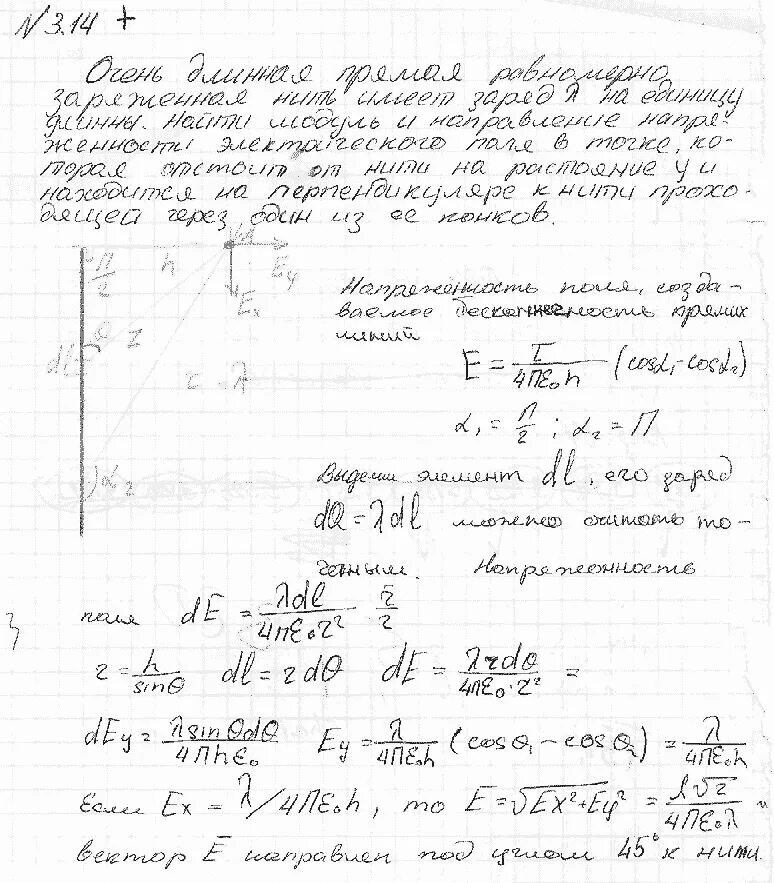 N 3.14 +
Очень длинная прямая равномерно
заряженная нить имеет заряд λ на единицу
длинны. Найти модуль и направление напря-
женности электрического поля в точке, ко-
торая отстоит от нити на растояние y и
находится на перпендикуляре к нити прохо-
дящей через один из ее концов.
π/2 h E_y
E_x
Напряженность поля, созда-
ваемое бесконечность прямих
линий
θ r
dl
τ = λ
E = τ/4πε₀h (cosα₁ - cosα₂)
α₁ = π/2 ; α₂ = π
α₂
Выдели элемент dl, его заряд
dQ = λdl можно считать то-
чечным. Напряжонность
поля dE = λdl/4πε₀r² r̄/r
r = h/sinθ dl = r dθ dE = λrdθ/4πε₀·r² =
dEy = λsinθdθ/4πhε₀ Ey = λ/4πε₀h (cosθ₁ - cosθ₂) = λ/4πε₀h
Если Ex = λ/4πε₀h, то E = √Ex²+Ey² = λ√2/4πε₀λ и
вектор E̅ направлен под углом 45° к нити.